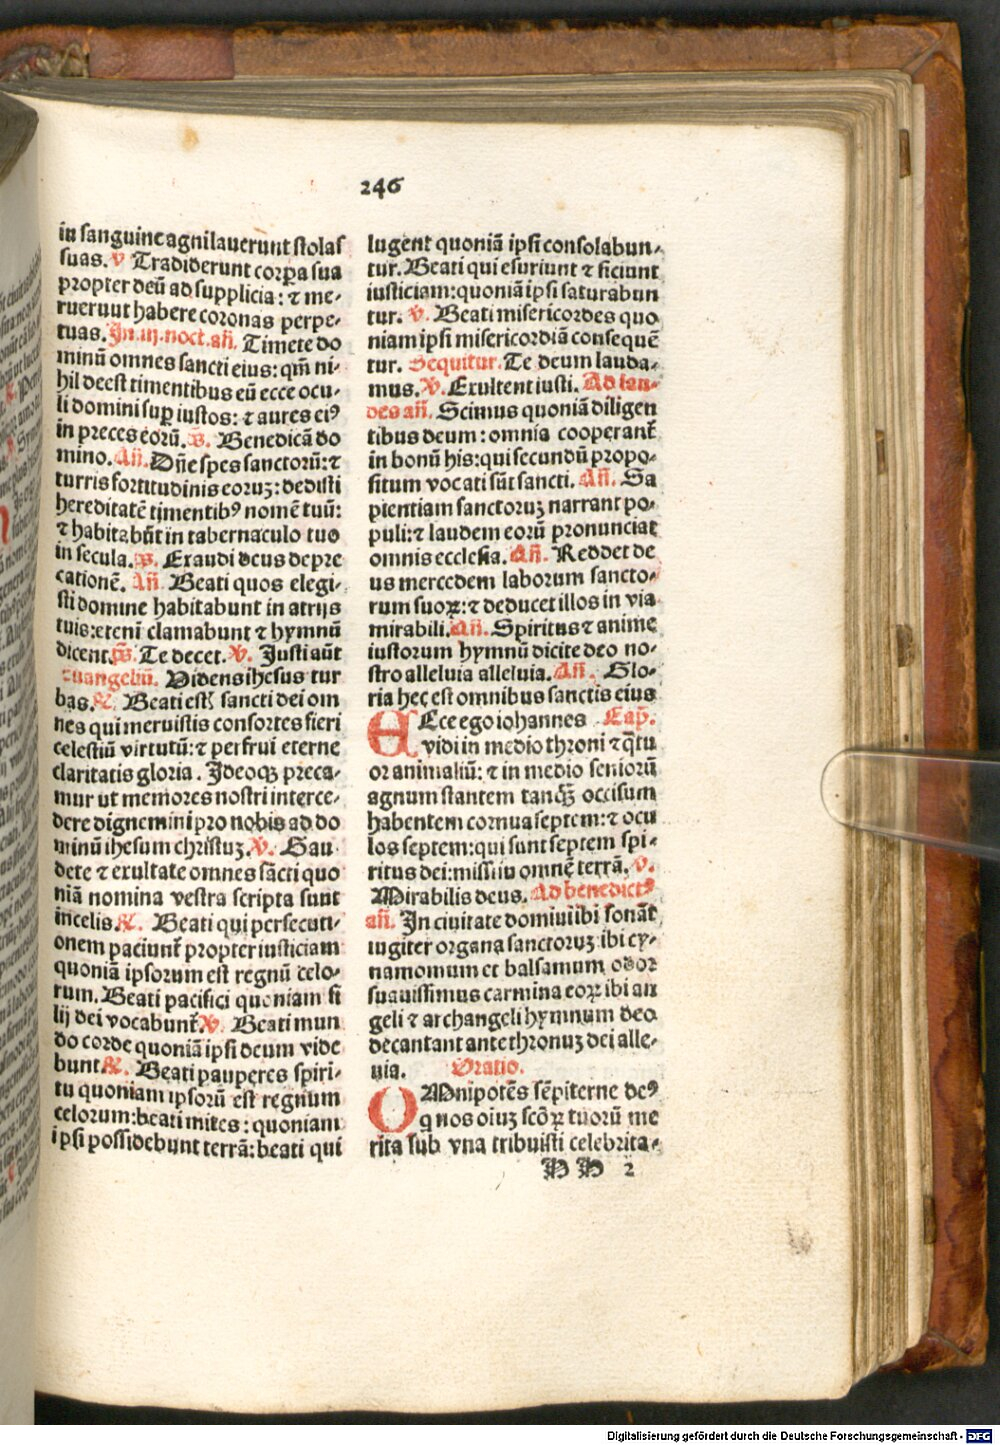 246
in sanguine agni lauerunt stolas
suas. v Tradiderunt corpa sua
propter deū ad supplicia: ⁊ me-
rueruut habere coronas perpe-
tuas. In .iii. noct. añ. Timete do
minū omnes sancti eius: qm̄ ni-
hil deest timentibus eū ecce ocu-
li domini sup iustos: ⁊ aures eiꝰ
in preces eorū. ps. Benedicā do
mino. Añ. Dñe spes sanctorū: ⁊
turris fortitudinis eoruꝫ: dedisti
hereditatē timentibꝰ nomē tuū:
⁊ habitabūt in tabernaculo tuo
in secula. ps. Exaudi deus depre
cationē. Añ. Beati quos elegi-
sti domine habitabunt in atrijs
tuis: eteni clamabunt ⁊ hymnū
dicent. ps. Te decet. V. Justi aūt
Euangeliū. Uidens ihesus tur
bas. R. Beati estꝭ sancti dei om
nes qui meruistis consortes fieri
celestiū virtutū: ⁊ perfrui eterne
claritatis gloria. Ideoqꝫ preca-
mur ut memores nostri interce-
dere dignemini pro nobis ad do
minū ihesum christuꝫ. V. Gau
dete ⁊ exultate omnes sācti quo
niā nomina vestra scripta sunt
in celis. R. Beati qui persecuti-
onem paciunt̄ propter iusticiam
quoniā ipsorum est regnū celo-
rum. Beati pacifici quoniam fi
lij dei vocabunt̄. V. Beati mun
do corde quoniā ipsi deum vide
bunt R. Beati pauperes spiri-
tu quoniam ipsorū est regnum
celorum: beati mites: quoniam
ipsi possidebunt terrā: beati qui
lugent quoniā ipsi consolabun-
tur. Beati qui esuriunt ⁊ siciunt
iusticiam: quoniā ipsi saturabun
tur. v. Beati misericordes quo
niam ipsi misericordiā consequē
tur. Sequitur. Te deum lauda-
mus. V. Exultent iusti. Ad lau-
des añ. Scimus quoniā diligen
tibus deum: omnia cooperant̄
in bonū his: qui secundū propo-
situm vocati sūt sancti. Añ. Sa
pientiam sanctoruꝫ narrant po-
puli: ⁊ laudem eorū pronunciat
omnis ecclesia. Añ. Reddet de
us mercedem laborum sancto-
rum suoꝝ: ⁊ deducet illos in via
mirabili. Añ. Spiritus ⁊ anime
iustorum hymnū dicite deo no-
stro alleluia alleluia. Añ. Glo-
ria hec est omnibus sanctis eius
ECce ego iohannes Cap.
vidi in medio throni ⁊ q̄tu
or animaliū: ⁊ in medio seniorū
agnum stantem tanqꝫ occisum
habentem cornua septem: ⁊ ocu
los septem: qui sunt septem spi-
ritus dei: missi iu omnē terrā. v.
Mirabilis deus. Ad benedictꝰ
añ. In ciuitate domiui ibi sonāt
iugiter organa sanctoruꝫ ibi cy-
namomum et balsamum odor
suauissimus carmina eoꝝ ibi an
geli ⁊ archangeli hymnum deo
decantant ante thronuꝫ dei alle-
uia. Oratio.
OMnipotēs sēpiterne deꝰ
q nos oiuꝫ scōꝝ tuorū me
rita sub vna tribuisti celebrita-
HH 2
Digitalisierung gefördert durch die Deutsche Forschungsgemeinschaft - DFG